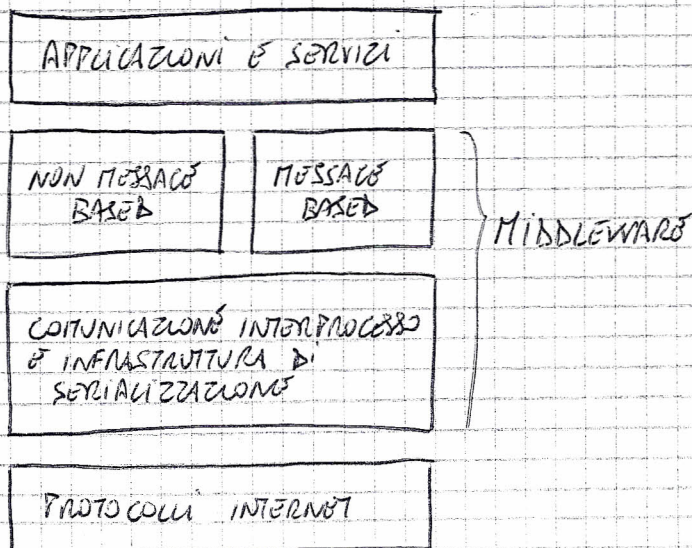 APPLICAZIONI E SERVIZI
NON MESSAGE
BASED
MESSAGE
BASED
MIDDLEWARE
COMUNICAZIONE INTERPROCESSO
E INFRASTRUTTURA DI
SERIALIZZAZIONE
PROTOCOLLI INTERNET